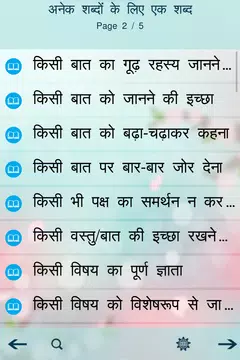 अनेक शब्दों के लिए एक शब्द
Page 2 / 5
किसी बात का गूढ़ रहस्य जानने...
किसी बात को जानने की इच्छा
किसी बात को बढ़ा-चढ़ाकर कहना
किसी बात पर बार-बार जोर देना
किसी भी पक्ष का समर्थन न कर...
किसी वस्तु/बात की इच्छा रखने...
किसी विषय का पूर्ण ज्ञाता
किसी विषय को विशेषरूप से जा...